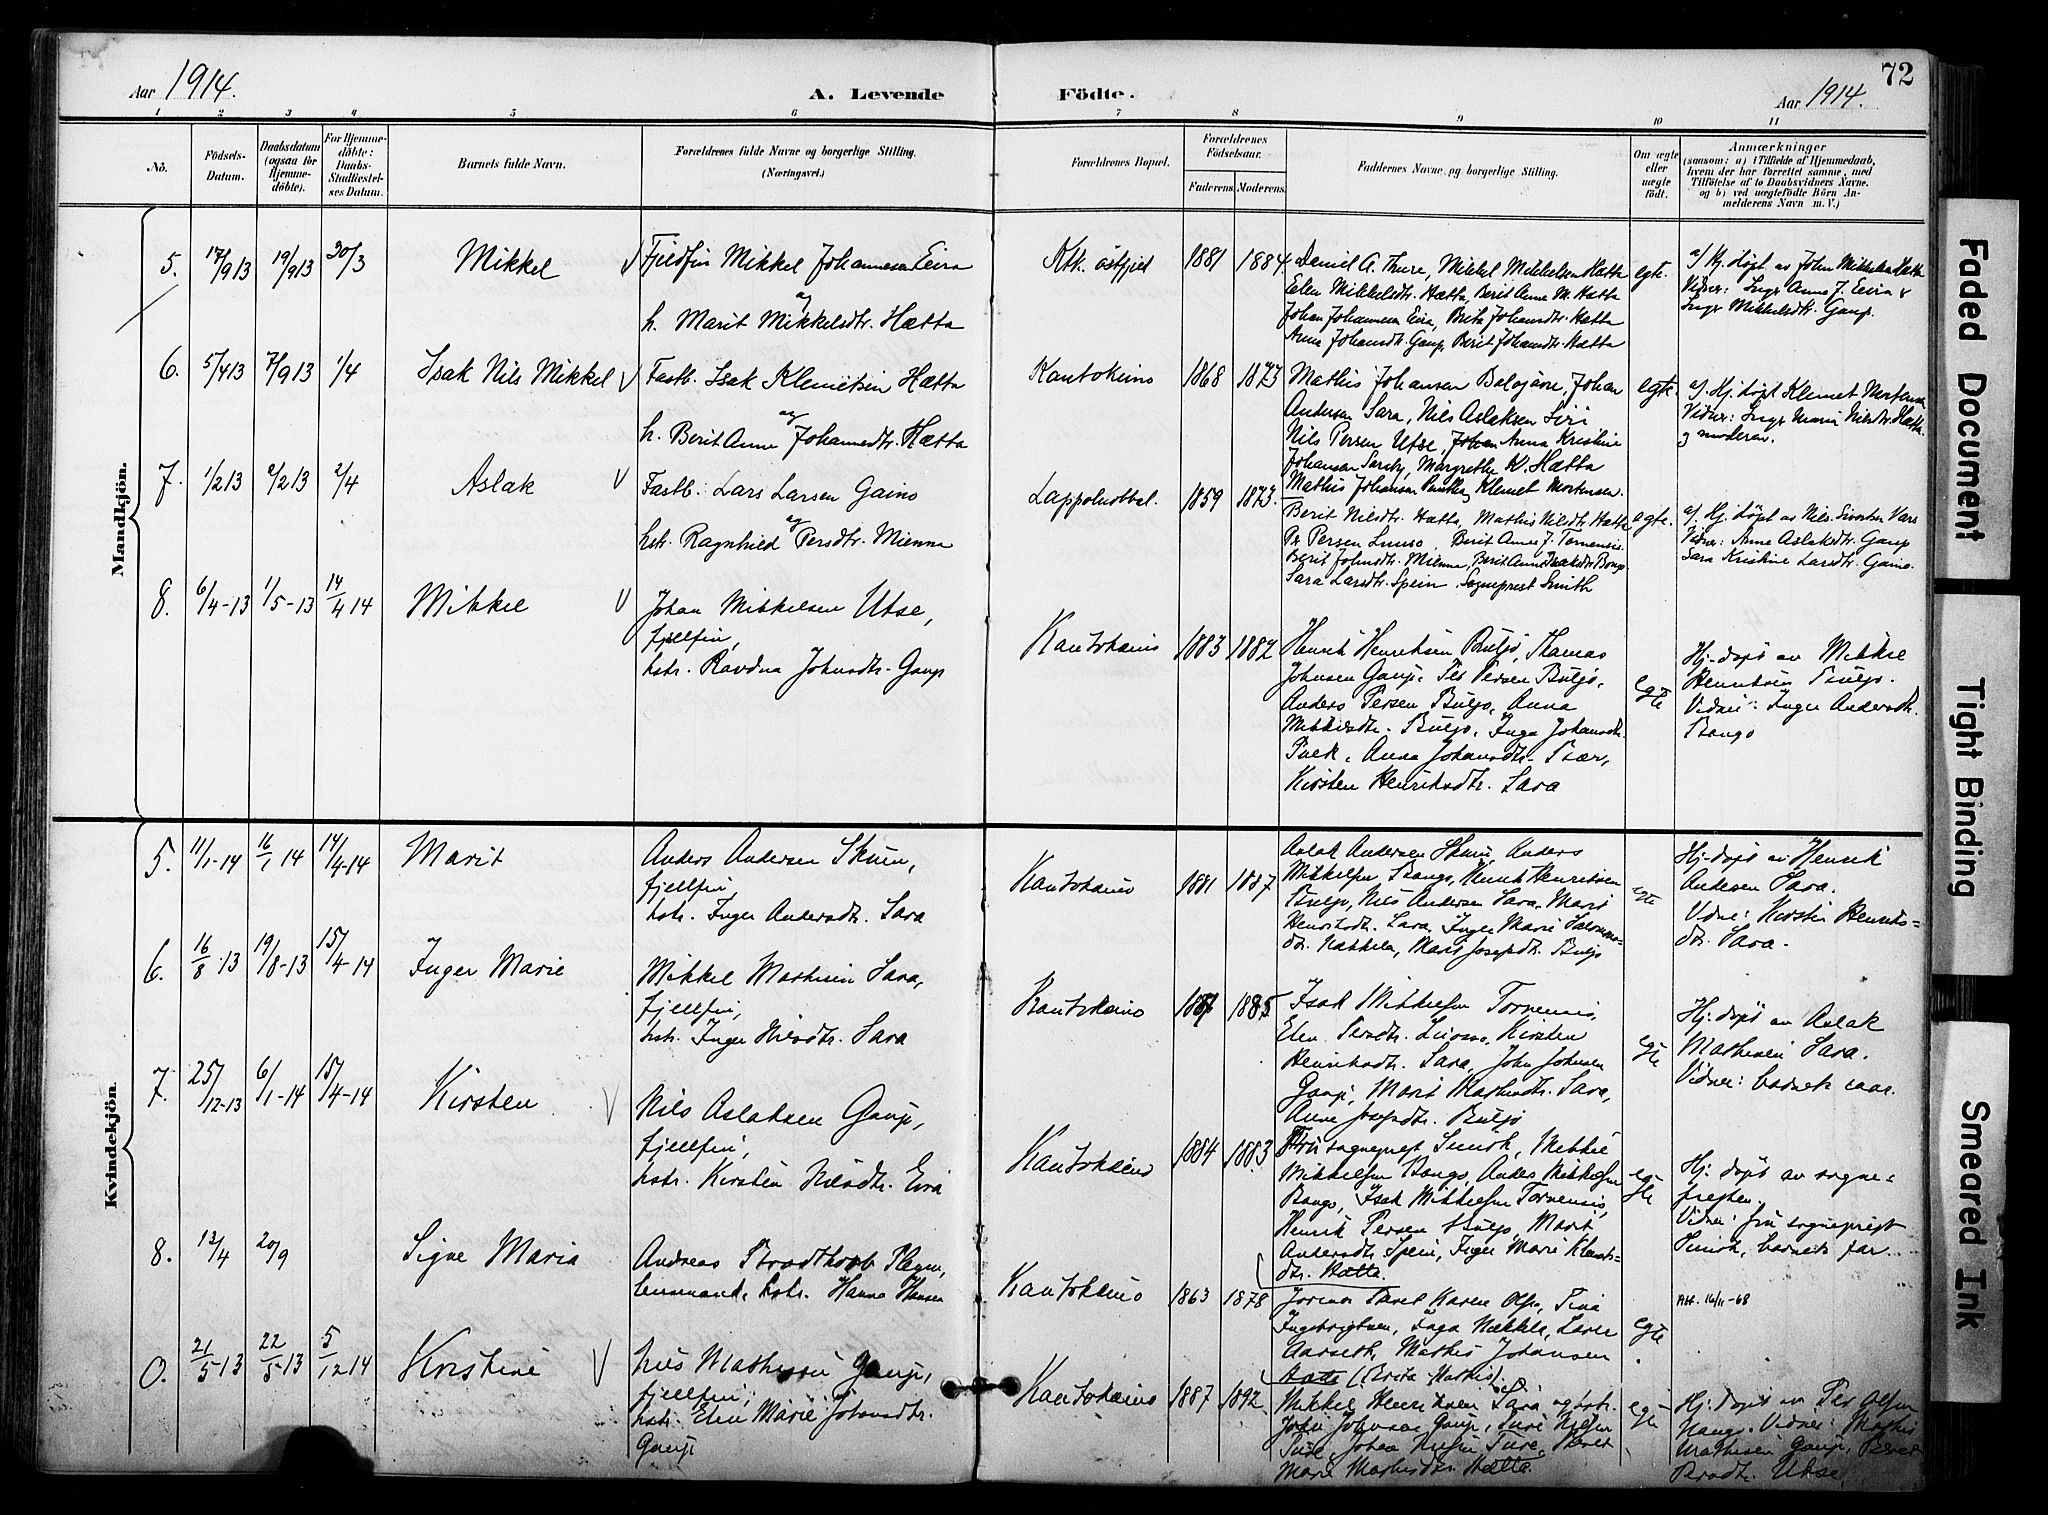 Aar 1914.
A. Levende
Födte.
72
Aar 1914.
1 2 3 4 5 6 7 8 9 10 11
No.
Födsels-
Datum.
Daabsdatum
(ogsaa for
Hjemme-
döbte).
For Hjemme-
döbte:
Daabs-
Stadfæstel-
ses Datum.
Barnets fulde Navn.
Forældrenes fulde Navne og borgerlige Stilling.
(Næringsvei.)
Forældrenes Bopæl.
Forældrenes
Födselsaar.
Faderens. Moderens.
Faddernes Navne og borgerlige Stilling.
Om ægte
eller
uægte
födt.
Anmærkninger
(saasom: a) i Tilfælde af Hjemmedaab,
hvem der har forrettet samme, med
Tilföielse af to Daabsvidners Navne.
og b) ved uægtefödte Börn An-
melderens Navn m. V.)
Mandkjön.
5. 17/9 13 19/9 13 30/3 Mikkel
Fjeldfin Mikkel Johannesen Eira
og
h. Marit Mikkelsdtr. Hætta
Ktk. østfjeld 1881 1884
Daniel A. Thure, Mikkel Mikkelsen Hætta
Elen Mikkelsdtr. Hætta, Berit Anne M. Hætta
Johan Johannesen Eira, Brita Johansdtr. Hætta
Anne Johansdtr. Gaup, Berit Johansdtr. Hætta
egte.
a/ Hj. døpt av Johan Mikkelsen Hætta
Vidner: Inger Anne J. Eira &
Inger Mikkelsdtr. Gaup.
6. 5/4 13 7/9 13 1/4 Isak Nils Mikkel
Fastb. Isak Klemetsen Hætta
og
h. Berit Anne Johannesdtr. Hætta
Kautokeino 1868 1873
Mathis Johansen Balojärve, Johan
Andersen Sara, Nils Aslaksen Siri
Nils Persen Utse, Johan Anna Kristine
Johansen Sersky, Margrethe K. Hætta
Mathis Johansen Klemet Mortensen.
egte.
a/. Hj. døpt Klemet Mortensen
Vidner: Inger Maria Nilsdtr. Hætta
og moderen.
7. 1/2 13 2/2 13 2/4 Aslak
Fastb. Lars Larsen Gaino
og
hstr. Ragnhild Persdtr. Mienna
Lappoluobbal. 1859 1873.
Berit Nilsdtr. Hætta, Mathis Nilsdtr Hætta
Pr Persen Luoso, Berit Anne J. Tornensis
Berit Johnsdtr. Mienna, Berit Anne Isaksdtr Bongo
Sara Larsdtr. Spein, Sogneprest Smith
egte.
a/. Hj. døpt av Nils Sivertsen Vars
Vidner: Anne Aslaksdtr. Gaup
Sara Kristine Larsdtr. Gaino.
8. 6/4-13 1/5-13 14/4 14 Mikkel
Johan Mikkelsen Utse,
fjellfin,
hstr. Ravdna Johnsdtr. Gaup
Kautokeino 1883 1882
Henrik Henriksen Buljo, Thomas
Johnsen Gaup, Per Persen Buljo,
Anders Persen Buljo, Anna
Mikkelsdtr. Buljo, Inga Johansdtr.
Anna Johansdtr.
Kirsten Henriksdtr. Sara
egte
Hj-døpt av Mikkel
Henriksen Buljo.
Vidner: Inger Andersdtr.
Bongo
Kvindekjön.
5. 11/1-14 16/1 14 14/4-14 Marit
Anders Andersen Skum,
fjellfin,
hstr. Inger Andersdtr. Sara
Kautokeino 1881 1887
Aslak Andersen Skum, Anders
Mikkelsen Bongo, Henrik Henriksen
Buljo, Nils Andersen Sara, Marit
Henriksdtr. Sara, Inger Marie Salomons-
dtr. Nækkela, Marit Josefsdtr. Buljo
egte
Hj-døpt av Henrik
Andersen Sara.
Vidne: Kirsten Henriks=
dtr. Sara.
6. 16/8-13 19/8-13 15/4-14 Inger Marie
Mikkel Mathisen Sara,
fjellfin,
hstr. Inger Nilsdtr. Sara
Kautokeino 1885
Isak Mikkelsen Tornensis,
Elen Persdtr. Luoso, Kirsten
Henriksdtr. Sara, John Johnsen
Gaup, Marit Mathisdtr. Sara,
Anne Josefsdtr. Buljo
egte
Hj. døpt av Aslak
Mathisen Sara.
Vidner: barnets
7. 25/12-13 6/1-14 15/4-14 Kirsten
Nils Aslaksen Gaup,
fjellfin,
hstr. Kirsten Nilsdtr. Eira
Kautokeino 1884 1883
Fru sogneprest Smith, Mikkel
Mikkelsen Bongo, Anders Mikkelsen
Bongo, Isak Mikkelsen Tornensis,
Henrik Persen Buljo, Marit
Andersdtr. Spein, Inger Marie Klemets-
dtr. Hætta.
egte
Hj. døpt av sogne=
presten.
Vidner: fru sogneprest
Smith, barnets far.
8. 13/4 20/9 Signe Maria
Andreas Bradthorb
lensmand, hstr. Hanna Hansen
Kautokeino 1863 1878
Jormor Karen Olsen, Tina
Ingebrigtsen, Inga Nækkela, Laura
Aarseth, Mathis Johansen
Hætta (Brita Mathis).
egte.
Att. 16/11-68
0. 21/5-13 22/5-13 5/12 14 Kirstine
Nils Mathisen Gaup,
fjellfin,
hstr. Elen Marie Johansdtr.
Gaup
Kautokeino 1887 1892
Mikkel Henriksen Sara og hstr.
John Johnsen Gaup, Ture Nilsen
Ture, Johan Nilsen Ture, Beret
Marie Mathisdtr. Hætta.
egte
Hj. døpt av Per Olsen
Nango. Vidner: Mathis
Mathisen Gaup, Beret
Utse.
Faded Document
Tight Binding
Smeared Ink